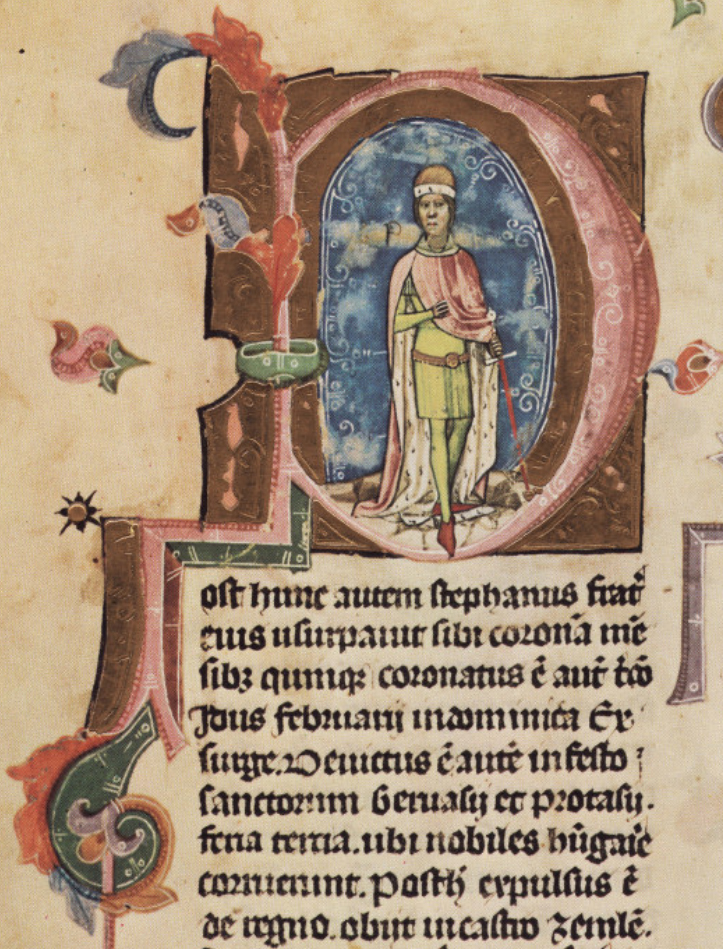 Post hunc autem stephanus frat᷑
eius usurpauit sibi coronā mē
sibꝫ quinqꝫ coronatus ē aut᷑ t͛cō
Idus februarii in dominica Ex
surge. Deuictus ē autē in festo
sanctorum Geruasij et protasij.
feria tercia. ubi nobiles hūgarie
corruerunt. Posthͦ expulsus ē
de regno. obiit in castro zemlē.